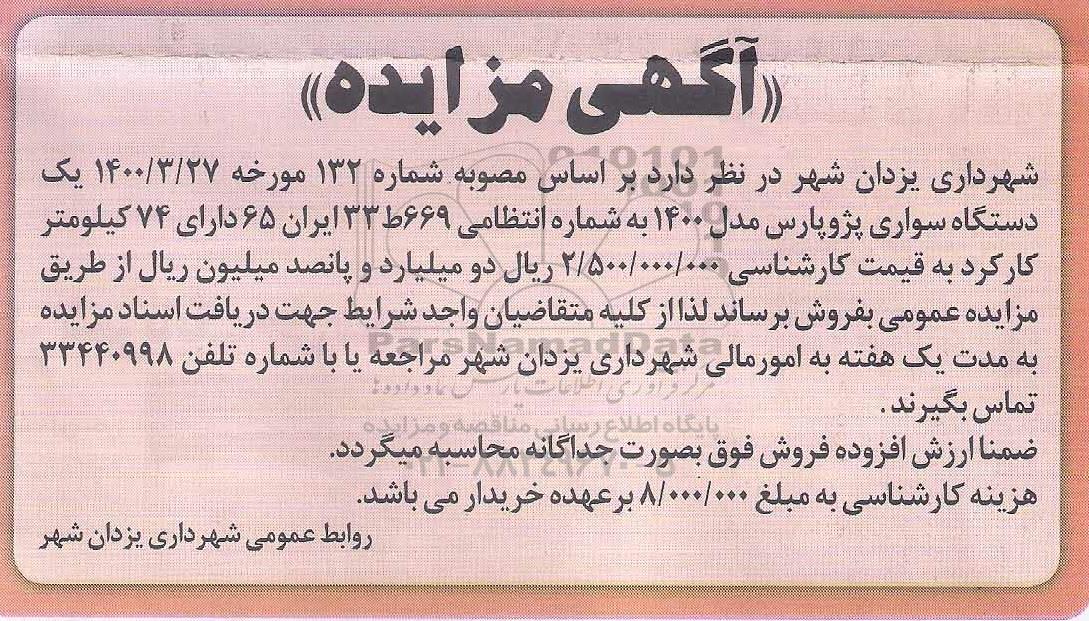 «آگهی مزایده»
شهرداری یزدان شهر در نظر دارد بر اساس مصوبه شماره ۱۳۲ مورخه ۱۴۰۰/۳/۲۷ یک
دستگاه سواری پژوپارس مدل ۱۴۰۰ به شماره انتظامی ۶۶۹ط۳۳ ایران ۶۵ دارای ۷۴ کیلومتر
کارکرد به قیمت کارشناسی ۲/۵۰۰/۰۰۰/۰۰۰ ریال دو میلیارد و پانصد میلیون ریال از طریق
مزایده عمومی بفروش برساند لذا از کلیه متقاضیان واجد شرایط جهت دریافت اسناد مزایده
به مدت یک هفته به امورمالی شهرداری یزدان شهر مراجعه یا با شماره تلفن ۳۳۴۴۰۹۹۸
تماس بگیرند .
ضمنا ارزش افزوده فروش فوق بصورت جداگانه محاسبه میگردد.
هزینه کارشناسی به مبلغ ۸/۰۰۰/۰۰۰ برعهده خریدار می باشد.
روابط عمومی شهرداری یزدان شهر
ParsNamadData
پایگاه اطلاع رسانی مناقصه و مزایده